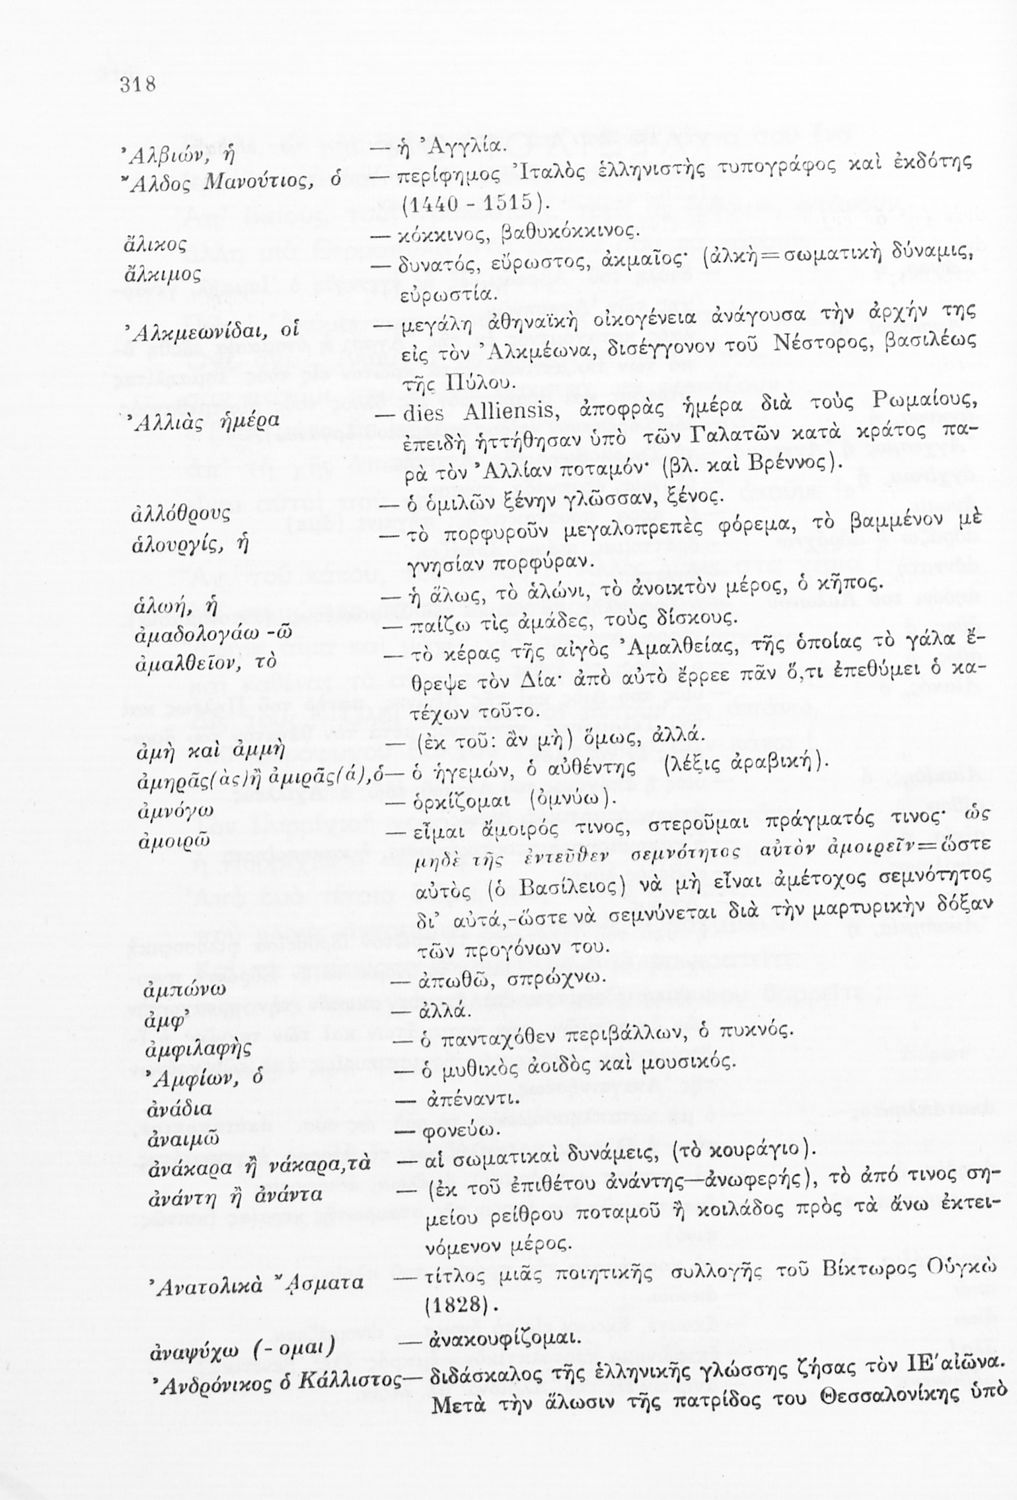 318
Ἀλβιών, ἡ — ἡ Ἀγγλία.
Ἄλδος Μανούτιος, ὁ — περίφημος Ἰταλὸς ἑλληνιστὴς τυπογράφος καὶ ἐκδότης
(1440 - 1515).
ἅλικος — κόκκινος, βαθυκόκκινος.
ἄλκιμος — δυνατός, εὔρωστος, ἀκμαῖος· (ἀλκὴ=σωματικὴ δύναμις,
εὐρωστία.
Ἀλκμεωνίδαι, οἱ — μεγάλη ἀθηναϊκὴ οἰκογένεια ἀνάγουσα τὴν ἀρχήν της
εἰς τὸν Ἀλκμέωνα, δισέγγονον τοῦ Νέστορος, βασιλέως
τῆς Πύλου.
Ἀλλιὰς ἡμέρα — dies Alliensis, ἀποφρὰς ἡμέρα διὰ τοὺς Ρωμαίους,
ἐπειδὴ ἡττήθησαν ὑπὸ τῶν Γαλατῶν κατὰ κράτος πα-
ρὰ τὸν Ἀλλίαν ποταμόν· (βλ. καὶ Βρέννος).
ἀλλόθρους — ὁ ὁμιλῶν ξένην γλῶσσαν, ξένος.
ἁλουργίς, ἡ — τὸ πορφυροῦν μεγαλοπρεπὲς φόρεμα, τὸ βαμμένον μὲ
γνησίαν πορφύραν.
ἁλωή, ἡ — ἡ ἅλως, τὸ ἁλώνι, τὸ ἀνοικτὸν μέρος, ὁ κῆπος.
ἀμαδολογάω -ῶ — παίζω τὶς ἀμάδες, τοὺς δίσκους.
ἀμαλθεῖον, τὸ — τὸ κέρας τῆς αἰγὸς Ἀμαλθείας, τῆς ὁποίας τὸ γάλα ἔ-
θρεψε τὸν Δία· ἀπὸ αὐτὸ ἔρρεε πᾶν ὅ,τι ἐπεθύμει ὁ κα-
τέχων τοῦτο.
ἀμὴ καὶ ἀμμὴ — (ἐκ τοῦ: ἂν μὴ) ὅμως, ἀλλά.
ἀμηρᾶς(ὰς)ἢ ἀμιρᾶς(ά),ὁ — ὁ ἡγεμών, ὁ αὐθέντης (λέξις ἀραβική).
ἀμνόγω — ὁρκίζομαι (ὀμνύω).
ἀμοιρῶ — εἶμαι ἄμοιρός τινος, στεροῦμαι πράγματός τινος· ὡς
μηδὲ τῆς ἐντεῦθεν σεμνότητος αὐτὸν ἀμοιρεῖν=ὥστε
αὐτὸς (ὁ Βασίλειος) νὰ μὴ εἶναι ἀμέτοχος σεμνότητος
δι' αὐτά,-ὥστε νὰ σεμνύνεται διὰ τὴν μαρτυρικὴν δόξαν
τῶν προγόνων του.
ἀμπώνω — ἀπωθῶ, σπρώχνω.
ἀμφ' — ἀλλά.
ἀμφιλαφὴς — ὁ πανταχόθεν περιβάλλων, ὁ πυκνός.
Ἀμφίων, ὁ — ὁ μυθικὸς ἀοιδὸς καὶ μουσικός.
ἀνάδια — ἀπέναντι.
ἀναιμῶ — φονεύω.
ἀνάκαρα ἢ νάκαρα,τὰ — αἱ σωματικαὶ δυνάμεις, (τὸ κουράγιο).
ἀνάντη ἢ ἀνάντα — (ἐκ τοῦ ἐπιθέτου ἀνάντης—ἀνωφερής), τὸ ἀπό τινος ση-
μείου ρείθρου ποταμοῦ ἢ κοιλάδος πρὸς τὰ ἄνω ἐκτει-
νόμενον μέρος.
Ἀνατολικὰ ᾌσματα — τίτλος μιᾶς ποιητικῆς συλλογῆς τοῦ Βίκτωρος Οὑγκὼ
(1828).
ἀναψύχω (- ομαι) — ἀνακουφίζομαι.
Ἀνδρόνικος ὁ Κάλλιστος — διδάσκαλος τῆς ἑλληνικῆς γλώσσης ζήσας τὸν ΙΕ' αἰῶνα.
Μετὰ τὴν ἅλωσιν τῆς πατρίδος του Θεσσαλονίκης ὑπὸ